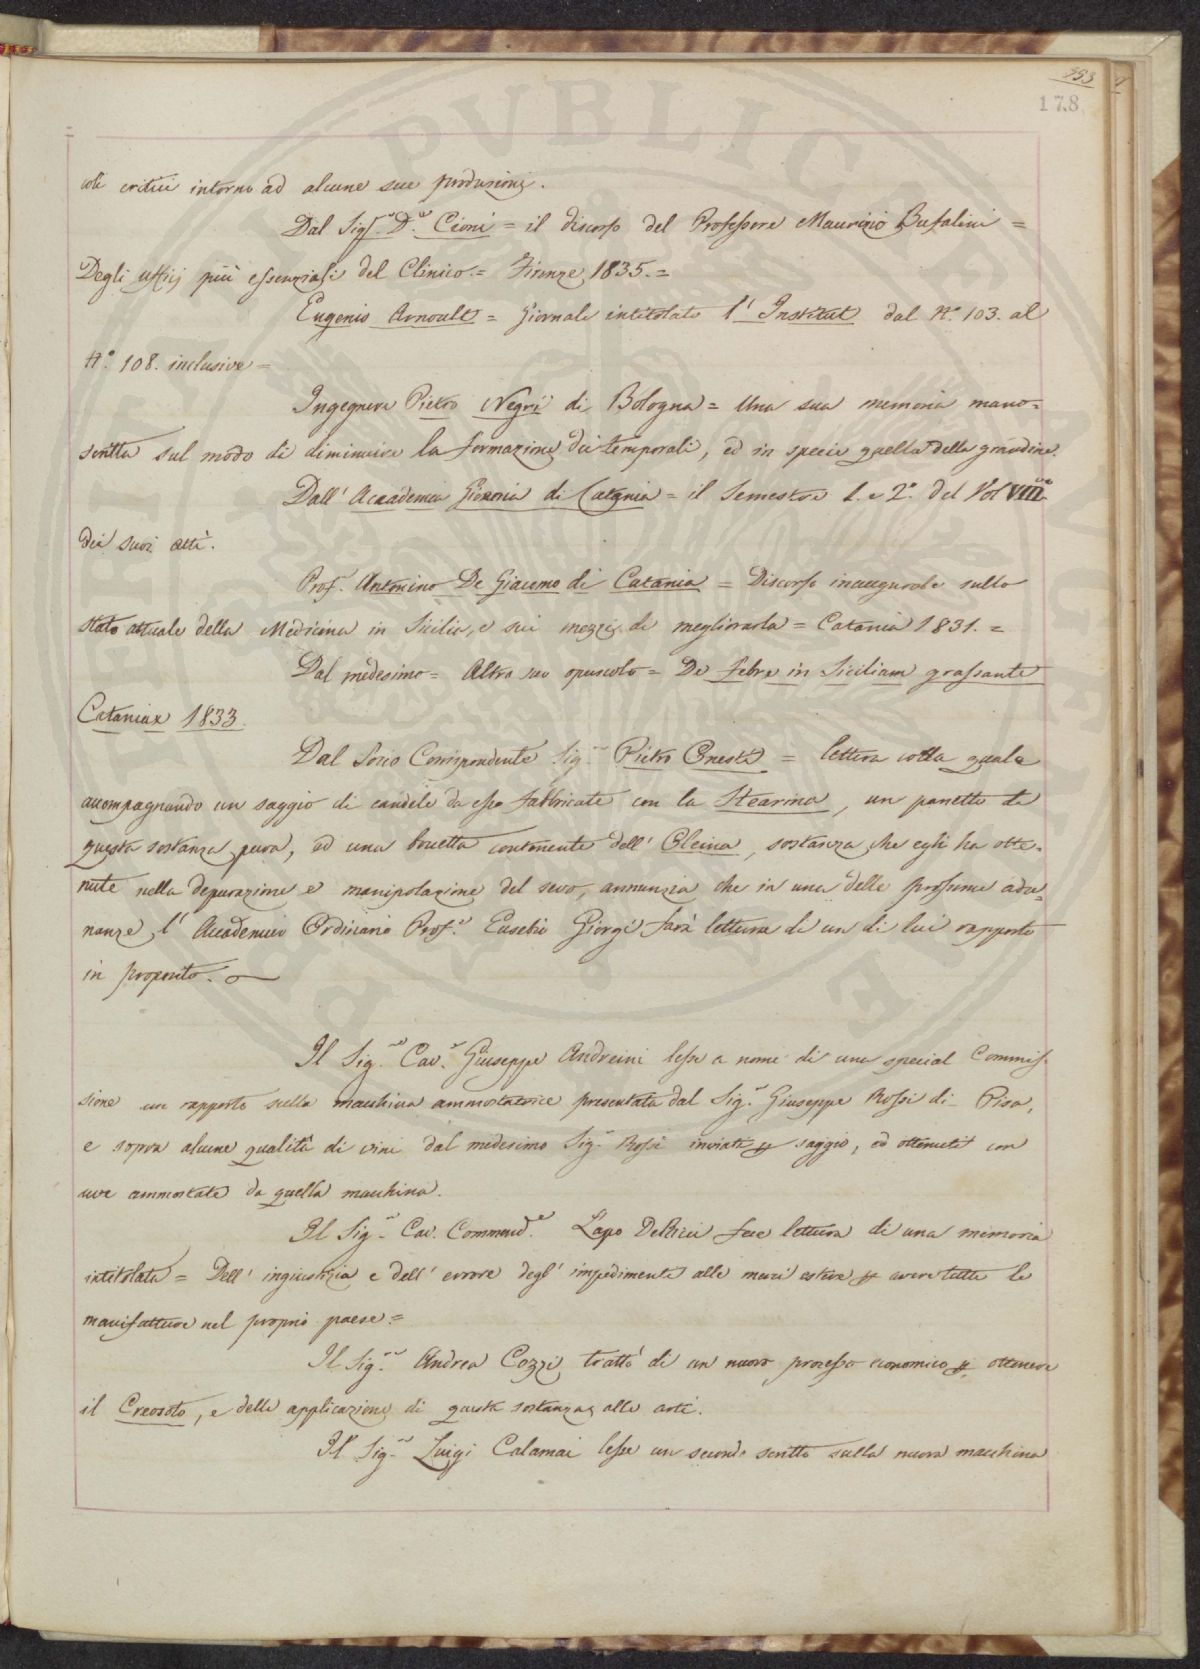 353
178
coli critici intorno ad alcune sue produzioni.
Dal Sigr. Dr. Cioni = il discorso del Professore Maurizio Bufalini =
Degli uffizj più essenziali del Clinico = Firenze 1835. =
Eugenio Arnoult = Giornale intitolato l' Institut dal N.° 103. al
N.° 108. inclusive =
Ingegnere Pietro Negri di Bologna = Una sua memoria mano=
scritta sul modo di diminuire la formazione dei temporali, ed in specie quella della grandine.
Dall' Accademia Gioenia di Catania = il Semestre 1. e 2.° del Vol VIII
dei suoi atti.
Prof. Antonino De Giacomo di Catania = Discorso inaugurale sullo
stato attuale della Medicina in Sicilia, e sui mezzi di migliorarla = Catania 1831. =
Dal medesimo = Altro suo opuscolo = De febre in Siciliam grassante
Cataniae 1833.
Dal Socio Corrispondente Sigr. Pietro Onesti = lettera colla quale
accompagnando un saggio di candele da esso fabbricate con la Stearina, un panetto di
questa sostanza pura, ed una boccetta contenente dell' Oleina, sostanza che egli ha otte=
nute nella depurazione e manipolazione del sevo, annunzia che in una delle prossime adu=
nanze l' Accademico Ordinario Prof.e Eusebio Giorgi farà lettura di un di lui rapporto
in proposito.
Il Sigr. Cavr. Giuseppe Andreini lesse a nome di una special Commis=
sione un rapporto sulla macchina ammostatrice presentata dal Sigr. Giuseppe Rossi di Pisa,
e sopra alcune qualità di vini dal medesimo Sigr. Rossi inviati p saggio, ed ottenuti con
uve ammostate da quella macchina.
Il Sigr. Cav. Commend.e Lapo DeRicci fece lettura di una memoria
intitolata = Dell' ingiustizia e dell' errore degl' impedimenti alle merci estere p avere tutte le
manifatture nel proprio paese =
Il Sigr. Andrea Cozzi trattò di un nuovo processo economico p ottenere
il Creosoto, e delle applicazioni di questa sostanza alle arti.
Il Sigr. Luigi Calamai lesse un secondo scritto sulla nuova macchina